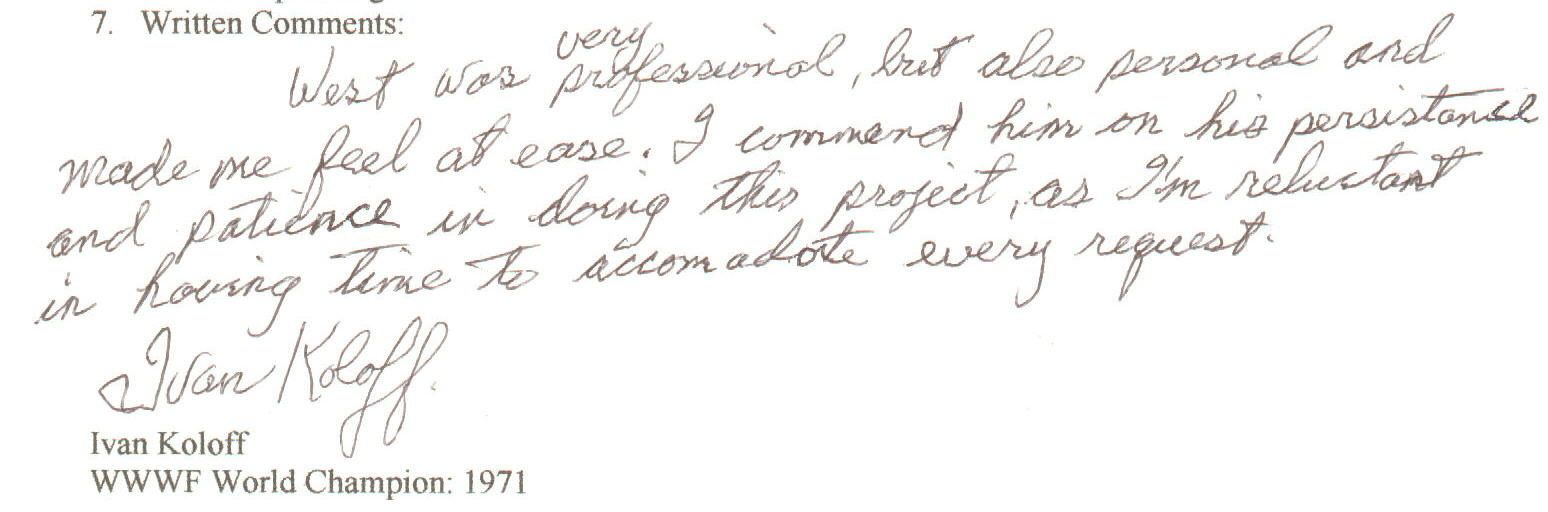 7. Written Comments:
West was very professional, but also personal and
made me feel at ease. I commend him on his persistance
and patience in doing this project, as I'm reluctant
in having time to accomadate every request.
Ivan Koloff.
Ivan Koloff
WWWF World Champion: 1971